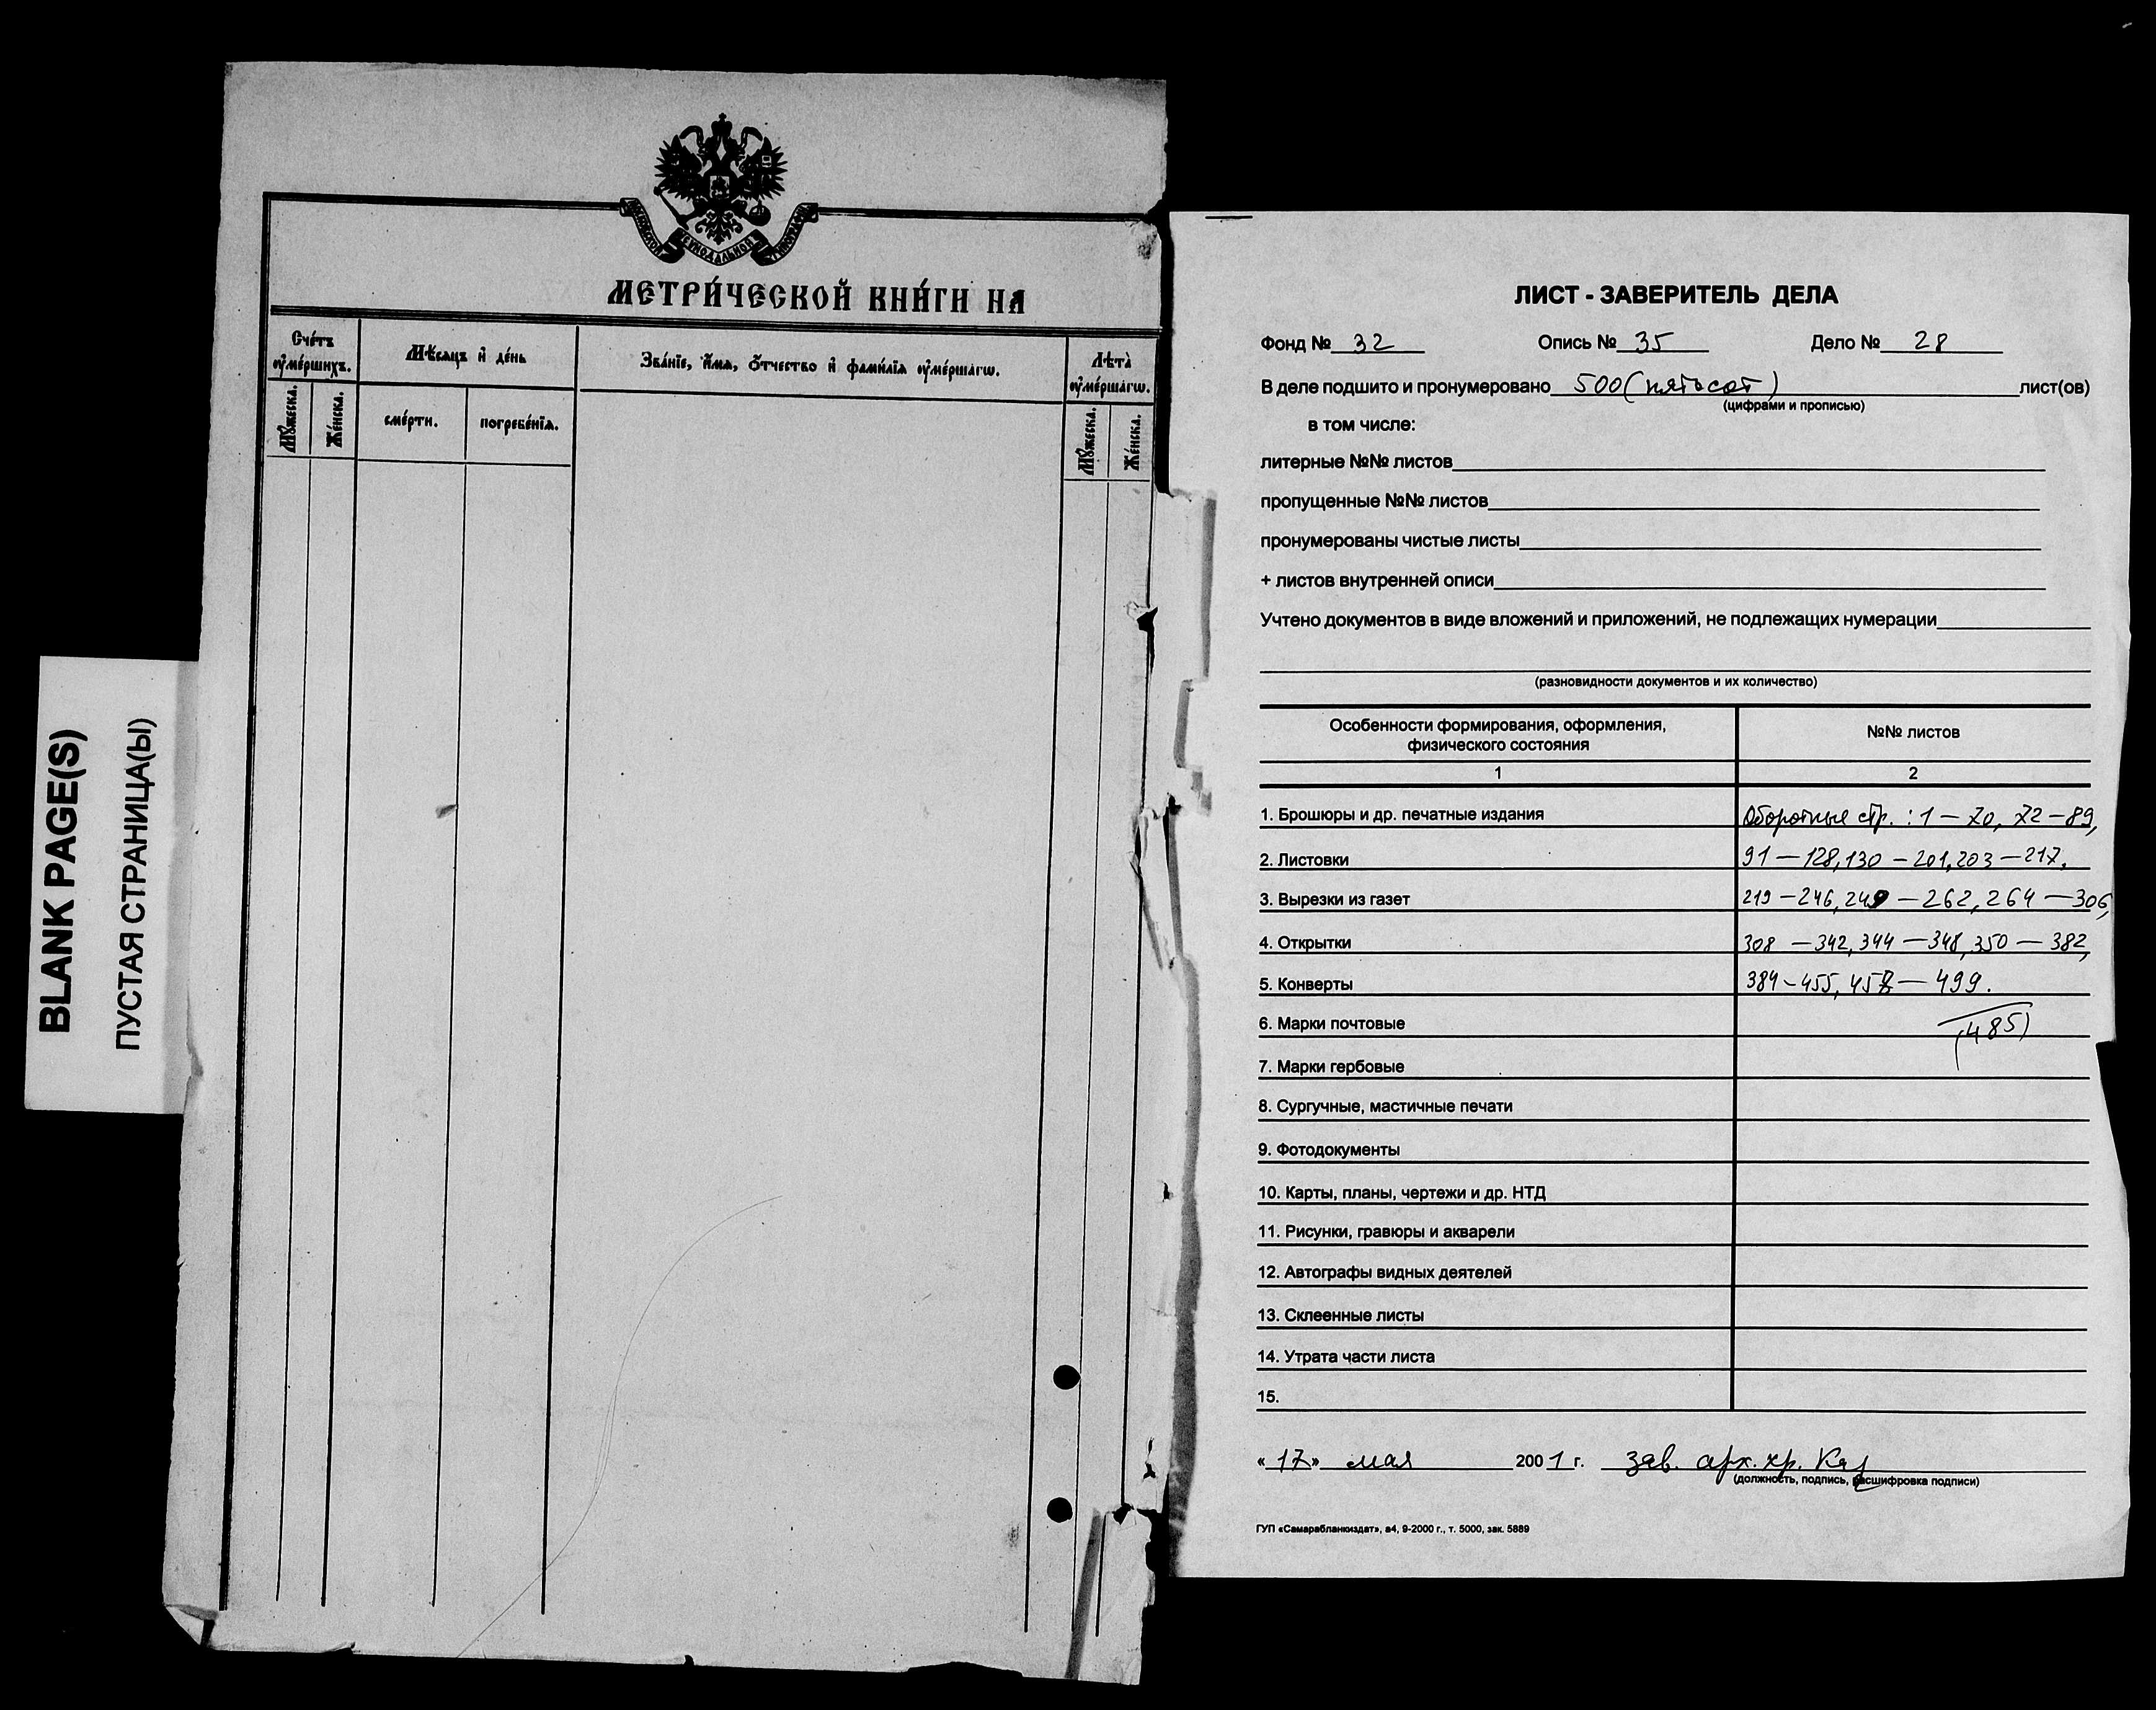 BLANK PAGE(S)
ПУСТАЯ СТРАНИЦА(Ы)
МОСКОВСКОЙ СѴНОДАЛЬНОЙ ТИПОГРАФІИ
МЕТРИ́ЧЕСКОЙ КНИ́ГИ НА
Сче́тъ ᲂу҆ме́ршихъ.
Мѣ́сяцъ и҆ де́нь
Зва́нїе, и҆́мя, ѻ҆́тчество и҆ фами́лїя ᲂу҆ме́ршагѡ.
Лѣта̀ ᲂу҆ме́ршагѡ.
Мꙋ́жеска.
Же́нска.
сме́рти.
погребе́нїя.
Мꙋ́жеска.
Же́нска.
ЛИСТ - ЗАВЕРИТЕЛЬ ДЕЛА
Фонд № 32 Опись № 35 Дело № 28
В деле подшито и пронумеровано 500 (пятьсот) лист(ов)
(цифрами и прописью)
в том числе:
литерные №№ листов
пропущенные №№ листов
пронумерованы чистые листы
+ листов внутренней описи
Учтено документов в виде вложений и приложений, не подлежащих нумерации
(разновидности документов и их количество)
Особенности формирования, оформления, физического состояния
№№ листов
1 2
1. Брошюры и др. печатные издания Оборотные стр.: 1 – 70, 72 – 89,
2. Листовки 91 – 128, 130 – 201, 203 – 217,
3. Вырезки из газет 219 – 246, 249 – 262, 264 – 306,
4. Открытки 308 – 342, 344 – 348, 350 – 382,
5. Конверты 384 – 455, 458 – 499.
6. Марки почтовые (485)
7. Марки гербовые
8. Сургучные, мастичные печати
9. Фотодокументы
10. Карты, планы, чертежи и др. НТД
11. Рисунки, гравюры и акварели
12. Автографы видных деятелей
13. Склеенные листы
14. Утрата части листа
15.
«17» мая 2001 г. зав. арх. хр.
(должность, подпись, расшифровка подписи)
ГУП «Самарабланкиздат», а4, 9-2000 г., т. 5000, зак. 5889